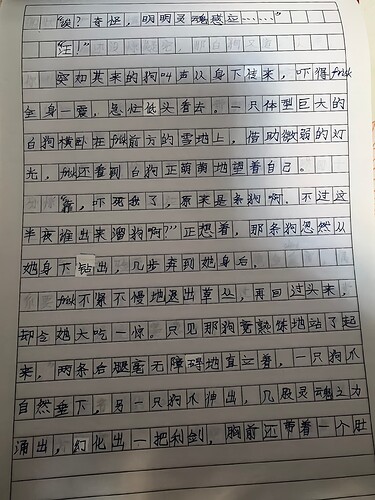 "诶？奇怪，明明灵魂感应……"
"汪！"
突如其来的狗叫声从身下传来，吓得frisk
全身一震，急忙低头看去。一只体型巨大的
白狗横卧在frisk前方的雪地上，借助微弱的灯
光，frisk还看到白狗正萌萌地望着自己。
"靠，吓死我了，原来是条狗啊。不过这
半夜谁出来溜狗啊？"正想着，那条狗忽然从
她身下钻出，几步奔到她身后。
frisk不紧不慢地退出草丛，再回过头来，
却令她大吃一惊。只见那狗竟熟练地站了起
来，两条后腿毫无障碍地直立着，一只狗爪
自然垂下，另一只狗爪伸出，几股灵魂之力
涌出，幻化出一把利剑，胸前还带着一个肚